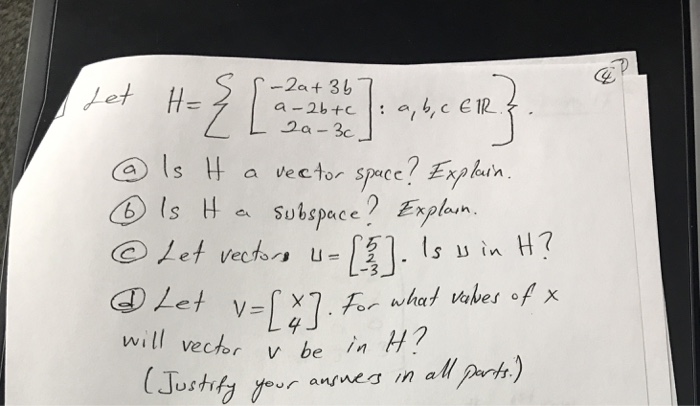 ④ P
Let H = { [ -2a + 3b
a - 2b + c
2a - 3c ] : a, b, c ∈ IR }.
ⓐ Is H a vector space? Explain.
ⓑ Is H a subspace? Explain.
ⓒ Let vectors u = [ 5
2
-3 ]. Is u in H?
ⓓ Let v = [ x
4 ]. For what values of x
will vector v be in H?
(Justify your answers in all parts.)